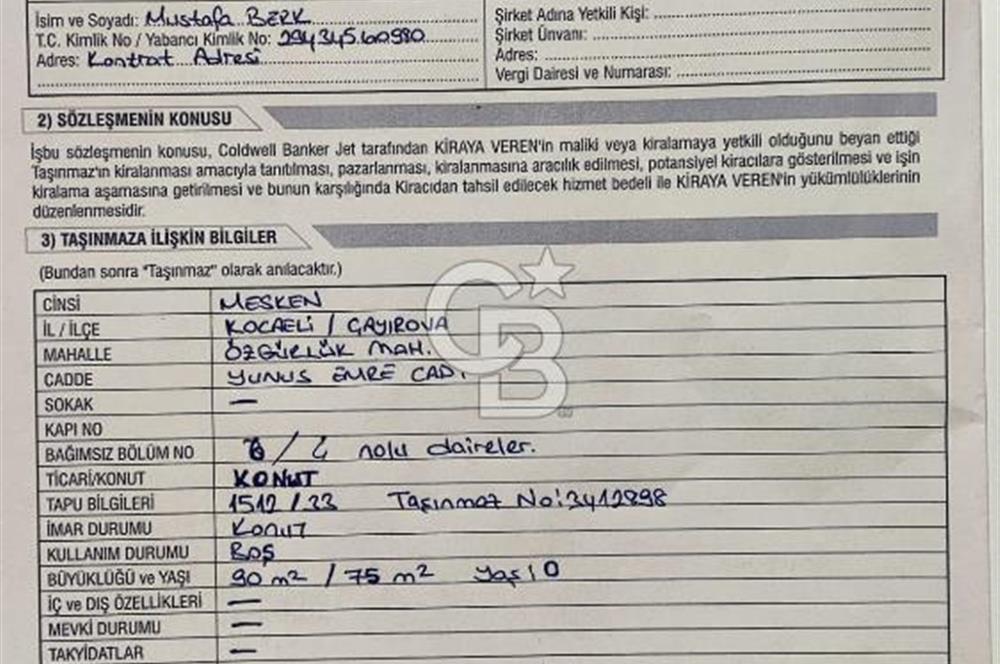 İsim ve Soyadı: Mustafa BERK
T.C. Kimlik No / Yabancı Kimlik No: 29434560980
Adres: Kontrat Adresi
Şirket Adına Yetkili Kişi:
Şirket Ünvanı:
Adres:
Vergi Dairesi ve Numarası:
2) SÖZLEŞMENİN KONUSU
İşbu sözleşmenin konusu, Coldwell Banker Jet tarafından KİRAYA VEREN'in maliki veya kiralamaya yetkili olduğunu beyan ettiği
Taşınmaz'ın kiralanması amacıyla tanıtılması, pazarlanması, kiralanmasına aracılık edilmesi, potansiyel kiracılara gösterilmesi ve işin
kiralama aşamasına getirilmesi ve bunun karşılığında Kiracıdan tahsil edilecek hizmet bedeli ile KİRAYA VEREN'in yükümlülüklerinin
düzenlenmesidir.
3) TAŞINMAZA İLİŞKİN BİLGİLER
(Bundan sonra "Taşınmaz" olarak anılacaktır.)
CİNSİ MESKEN
İL / İLÇE KOCAELİ / ÇAYIROVA
MAHALLE ÖZGÜRLÜK MAH.
CADDE YUNUS EMRE CAD.
SOKAK —
KAPI NO
BAĞIMSIZ BÖLÜM NO 6 / 4 nolu daireler.
TİCARİ/KONUT KONUT
TAPU BİLGİLERİ 1512 / 33 Taşınmaz No: 3412898
İMAR DURUMU Konut
KULLANIM DURUMU Boş
BÜYÜKLÜĞÜ ve YAŞI 90 m² / 75 m² Yaş: 0
İÇ ve DIŞ ÖZELLİKLERİ —
MEVKİ DURUMU —
TAKYİDATLAR —
CB